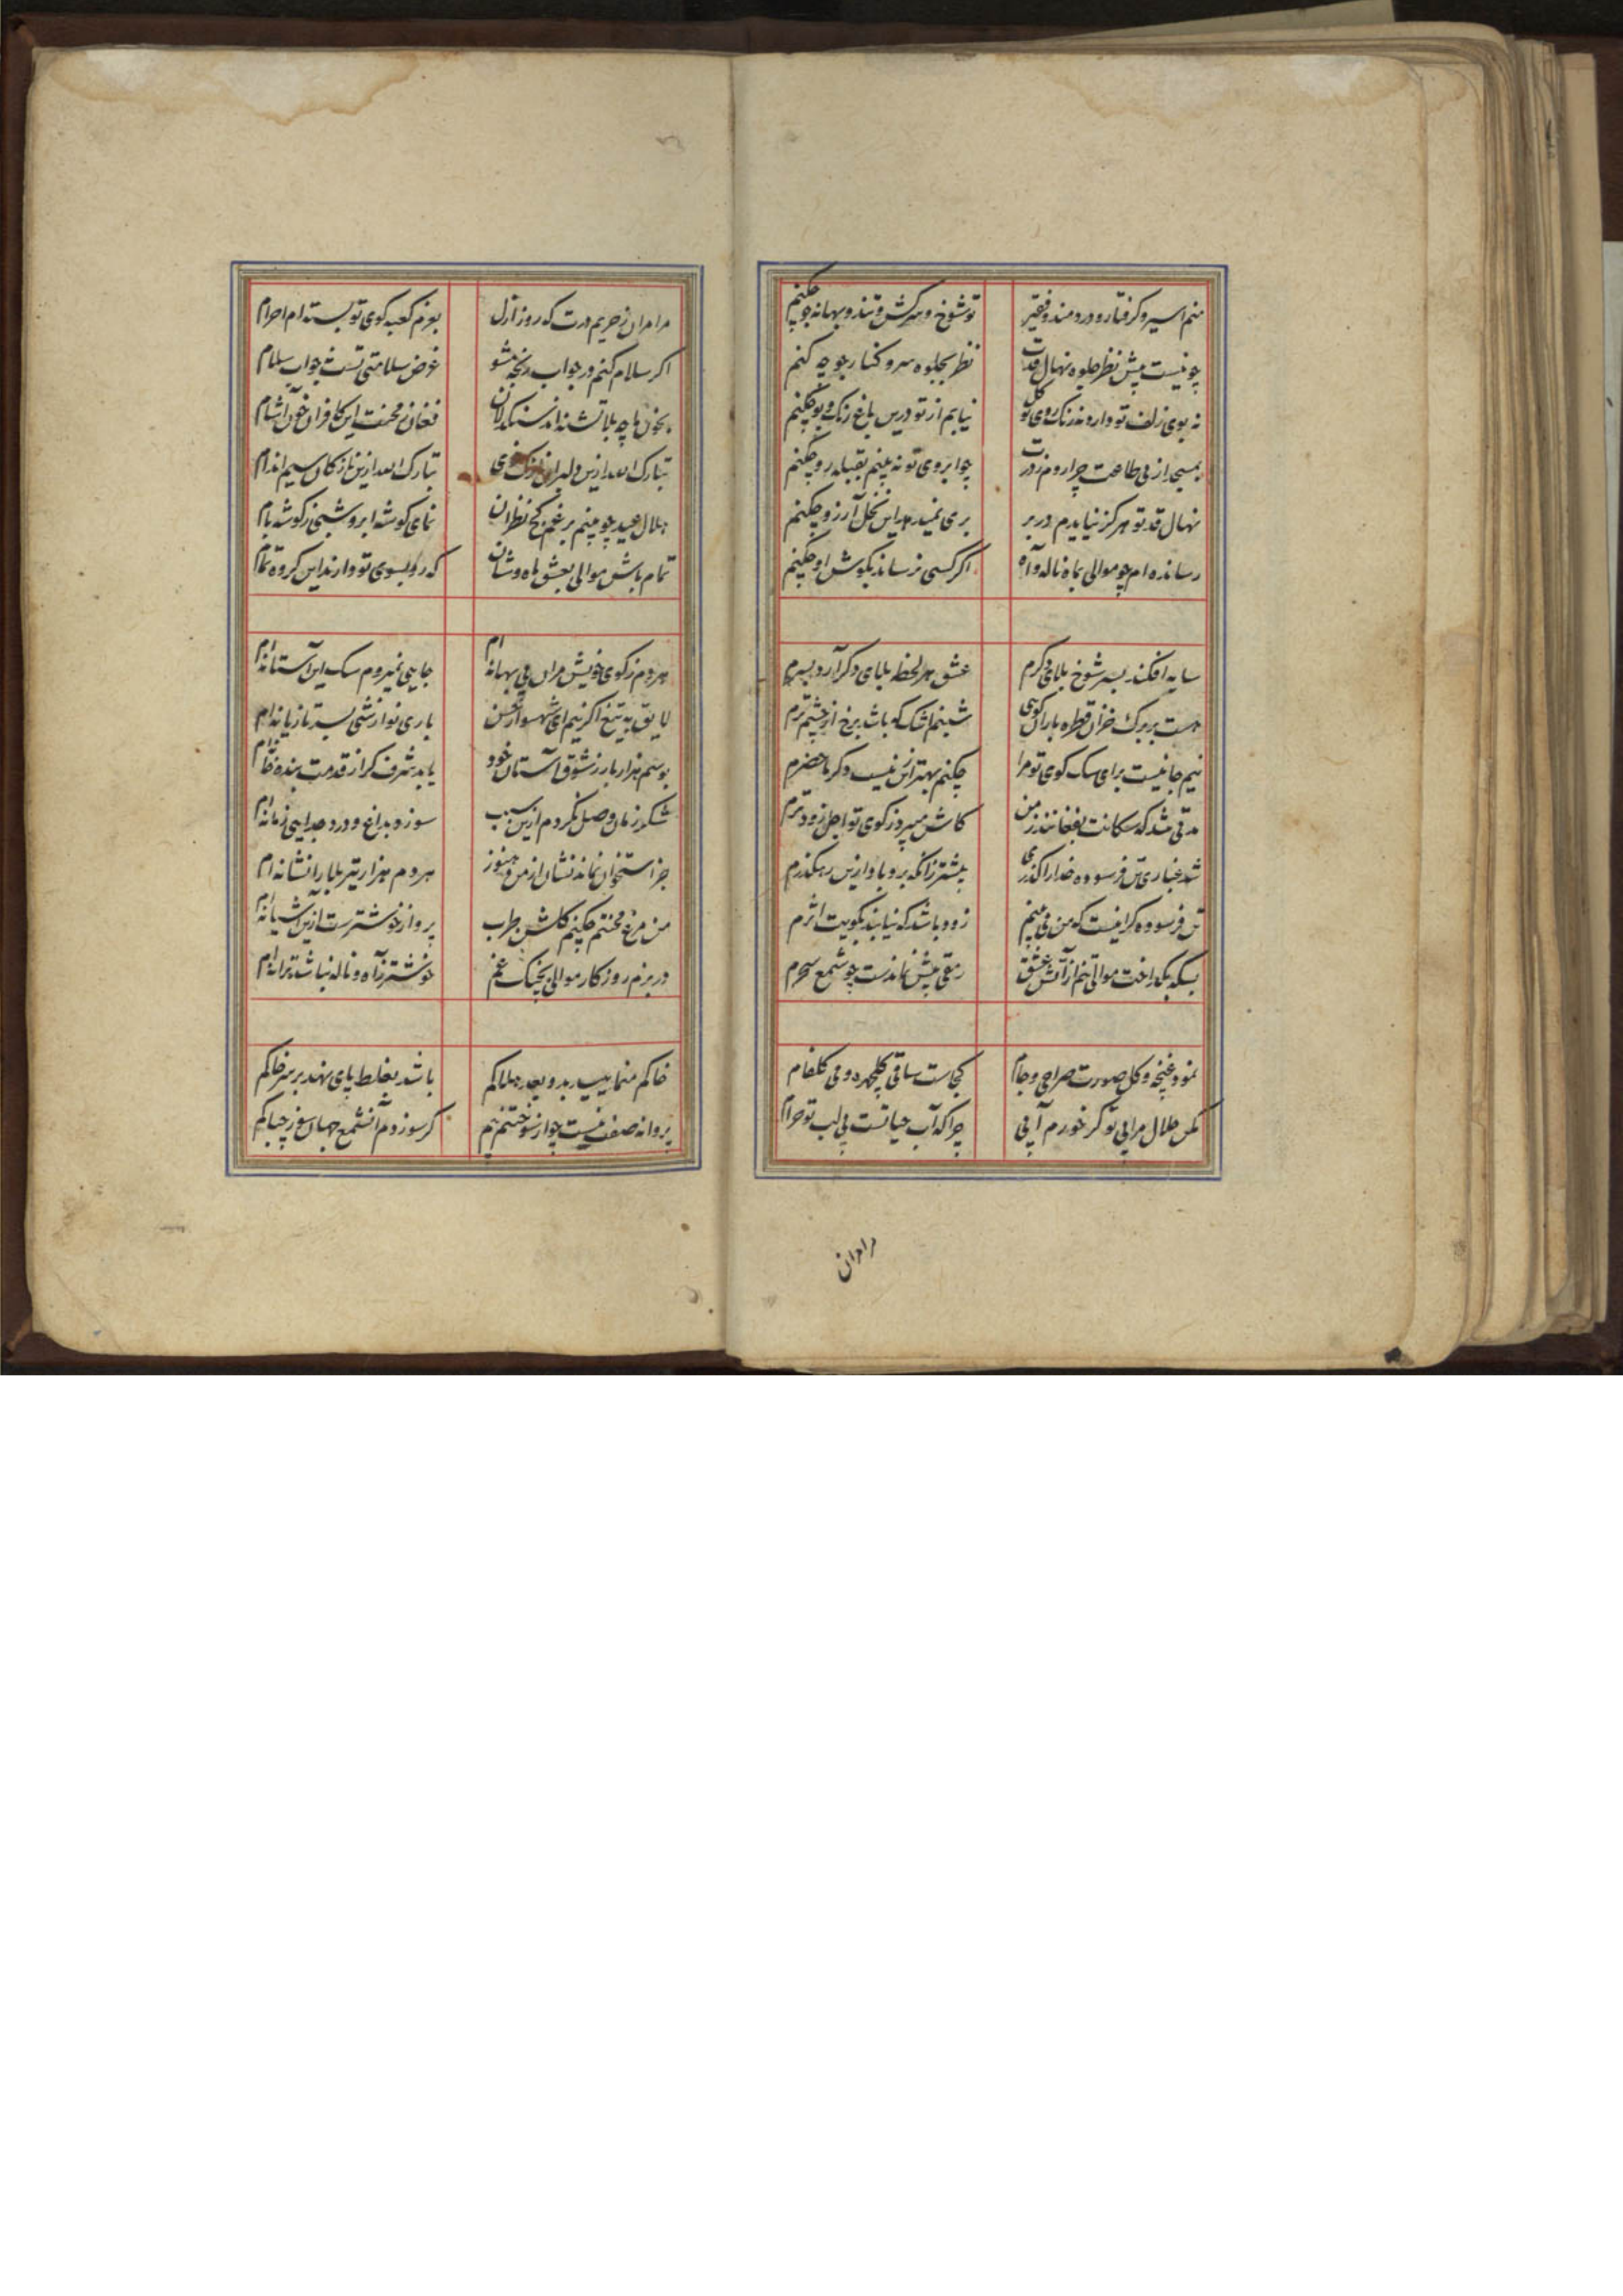 منم اسیر و کرفتار و دردمند و فقیر تو شوخ و سرکش و تند و بهانه جو چکنم
چو نیست پیش نظر جلوه نهال قدت نظر بجلوه سرو کنار جو چه کنم
نه بوی زلف تو دارد نه رنک روی تو کل نیابم از تو درین باغ رنک و بو چکنم
بمسجد از پی طاعت چرا روم زدرت چو ابروی تو نه بینم بقبله رو چکنم
نهال قد تو هرکز نیایدم در بر بری نمیدهد این نخل آرزو چکنم
رسانده ام چو موالی بماه ناله و آه اکر کسی نرساند بکوش او چکنم
سایه افکند بسر شوخ بلای دکرم عشق هر لحظه بلای دکر آرد بسرم
هست بر برک خزان قطره باران کویی شبنم اشک که باشد برخ از چشم ترم
نیم جانیست برای سک کوی تو مرا چکنم بهتر ازین نیست دکر ماحضرم
مدتی شد که سکانت بفغانند ز من کاش میبرد ز کوی تو اجل زودترم
شد غباری تن فرسوده خدا را کذری پیشتر زانکه برد باد ازین رهکذرم
تن فرسوده کر اینست که من می بینم زود باشد که نیابند بکویت اثرم
بسکه بکداخت موالی تنم از آتش عشق رمقی بیش نماندست چو شمع سحرم
نمود غنچه و کل صورت صراحی و جام کجاست ساقی کلچهره و می کلفام
مکن حلال مرا بی تو کر خورم آبی چرا که آب حیاتست بی لب تو حرام
مرا مران
مرا مران ز حریم درت که روز ازل بعزم کعبه کوی تو بسته ام احرام
اکر سلام کنم در جواب رنجه مشو غرض سلامتی تست نه جواب سلام
بخون ما چه بلا تشنه اند سنکدلان فغان ز محنت این کافران خون آشام
تبارک الله ازین دلبران نازک خوی تبارک الله ازین نازکان سیم اندام
هلال عید چو بینم برغم کج نظران نمای کوشه ابرو شبی ز کوشه بام
تمام باش موالی بعشق ماه وشان که رو بسوی تو دارند این کروه تمام
هر دم ز کوی خویش مران بی بهانه ام جایی نمیروم سک این آستانه ام
لایق به تیغ اکر نیم ای شهسوار حسن باری نوازشی بسر تازیانه ام
بوسم هزار بار ز شوق آستان خود یابد شرف کر از قدمت بنده خانه ام
شکر زمان وصل نکردم ازین سبب سوزد بداغ و درد جدایی زمانه ام
جز استخوان نماند نشان از من و هنوز هر دم هزار تیر بلا را نشانه ام
من مرغ محنتم چکنم کلشن طرب پرواز خوشترست ازین آشیانه ام
در بزم روزکار موالی بچنک غم خوشتر ز آه و ناله نباشد ترانه ام
خاکم منمایید بدو بعد هلاکم باشد بغلط پای نهد بر سر خاکم
پروانه صفت نیست چو از سوختنم بیم کر سوزدم آن شمع جهان سوز چه باکم